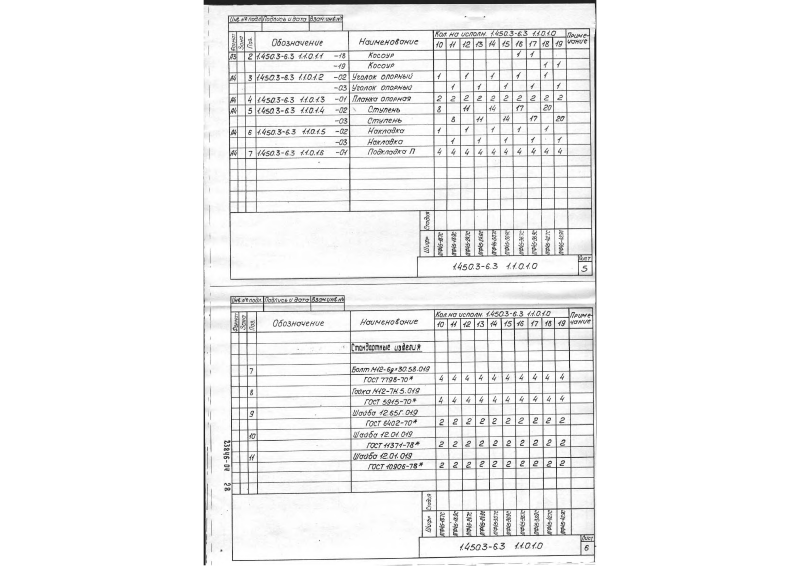 Инв.№ подл. Подпись и дата Взам.инв.№
Формат Зона Поз. Обозначение Наименование Кол на исполн. 1.450.3-6.3 1.1.0.1.0 Приме-чание
10 11 12 13 14 15 16 17 18 19
А3 2 1.450.3-6.3 1.1.0.1.1 -18 Косоур 1 1
-19 Косоур 1 1
А4 3 1.450.3-6.3 1.1.0.1.2 -02 Уголок опорный 1 1 1 1 1
-03 Уголок опорный 1 1 1 1 1
А4 4 1.450.3-6.3 1.1.0.1.3 -01 Планка опорная 2 2 2 2 2 2 2 2 2 2
А4 5 1.450.3-6.3 1.1.0.1.4 -02 Ступень 8 11 14 17 20
-03 Ступень 8 11 14 17 20
А4 6 1.450.3-6.3 1.1.0.1.5 -02 Накладка 1 1 1 1 1
-03 Накладка 1 1 1 1 1
А4 7 1.450.3-6.3 1.1.0.1.6 -01 Подкладка П 4 4 4 4 4 4 4 4 4 4
Стадия
Шифр
1.450.3-6.3 1.1.0.1.0
Лист
5
Инв.№ подл. Подпись и дата Взам.инв.№
Формат Зона Поз. Обозначение Наименование Кол на исполн. 1.450.3-6.3 1.1.0.1.0 Приме-чание
10 11 12 13 14 15 16 17 18 19
Стандартные изделия
7 Болт М12-6g×30.58.019
ГОСТ 7798-70* 4 4 4 4 4 4 4 4 4 4
8 Гайка М12-7Н.5.019
ГОСТ 5915-70* 4 4 4 4 4 4 4 4 4 4
9 Шайба 12.65Г.019
ГОСТ 6402-70* 2 2 2 2 2 2 2 2 2 2
10 Шайба 12.01.019
ГОСТ 11371-78* 2 2 2 2 2 2 2 2 2 2
11 Шайба 12.01.019
ГОСТ 10906-78* 2 2 2 2 2 2 2 2 2 2
28
Стадия
Шифр
1.450.3-6.3 1.1.0.1.0
Лист
6